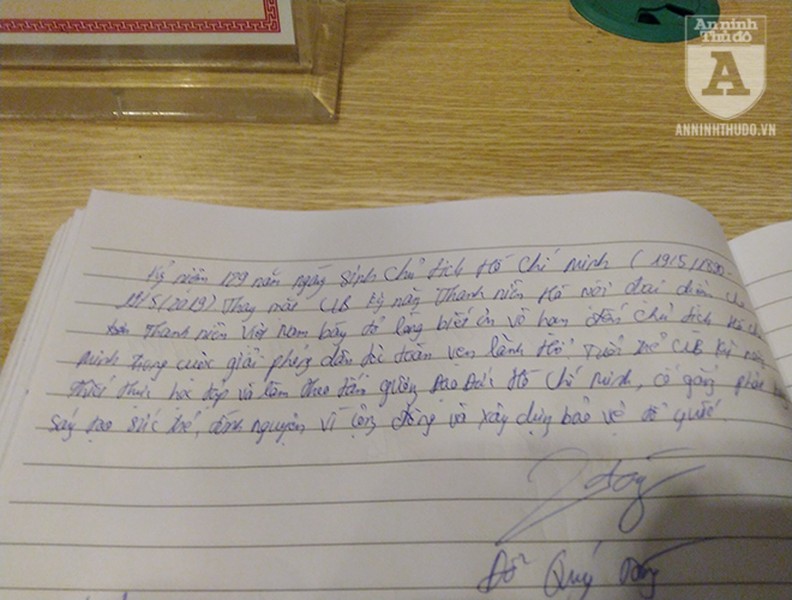 An ninh
Thủ đô
A
ANNINHTHUDO.VN
Kỷ niệm 129 năm ngày sinh Chủ tịch Hồ Chí Minh ( 19/5/1890-
19/5/2019) Thay mặt CLB kỹ năng Thanh niên Hà Nội đại diện cho
Thanh niên Việt Nam bày tỏ lòng biết ơn vô hạn đến Chủ tịch Hồ Chí
Minh trong cuộc giải phóng dân tộc toàn vẹn lãnh thổ. Tuổi trẻ CLB kỹ năng
thiết thực học tập và làm theo tấm gương Đạo Đức Hồ Chí Minh, cố gắng phát huy
sáng tạo sức trẻ, tình nguyện vì cộng đồng và xây dựng bảo vệ tổ quốc.
Đỗ Quý